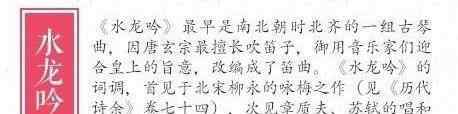 水龙吟
《水龙吟》最早是南北朝时北齐的一组古琴
曲，因唐玄宗最擅长吹笛子，御用音乐家们迎
合皇上的旨意，改编成了笛曲。《水龙吟》的
词调，首见于北宋柳永的咏梅之作（见《历代
诗余》卷七十四），次见章质夫、苏轼的唱和